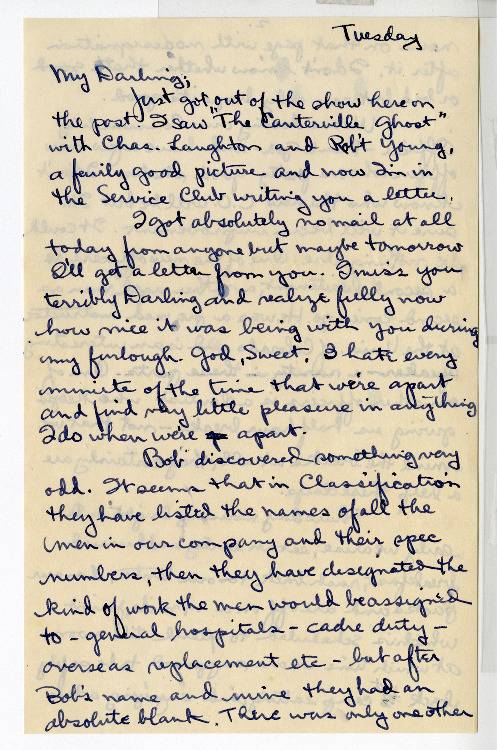 Tuesday
My Darling;
Just got out of the show here on
the post. I saw "The Canterville Ghost"
with Chas. Laughton and Rob't Young,
a fairly good picture and now I'm in
the Service Club writing you a letter.
I got absolutely no mail at all
today from anyone but maybe tomorrow
I'll get a letter from you. I miss you
terribly Darling and realize fully now
how nice it was being with you during
my furlough. God, Sweet, I hate every
minute of the time that we're apart
and find very little pleasure in anything
I do when we're apart.
Bob discovered something very
odd. It seems that in Classification
they have listed the names of all the
men in our company and their spec
numbers, then they have designated the
kind of work the men would be assigned
to - general hospitals - cadre duty -
overseas replacement etc - but after
Bob's name and mine they had an
absolute blank. There was only one other